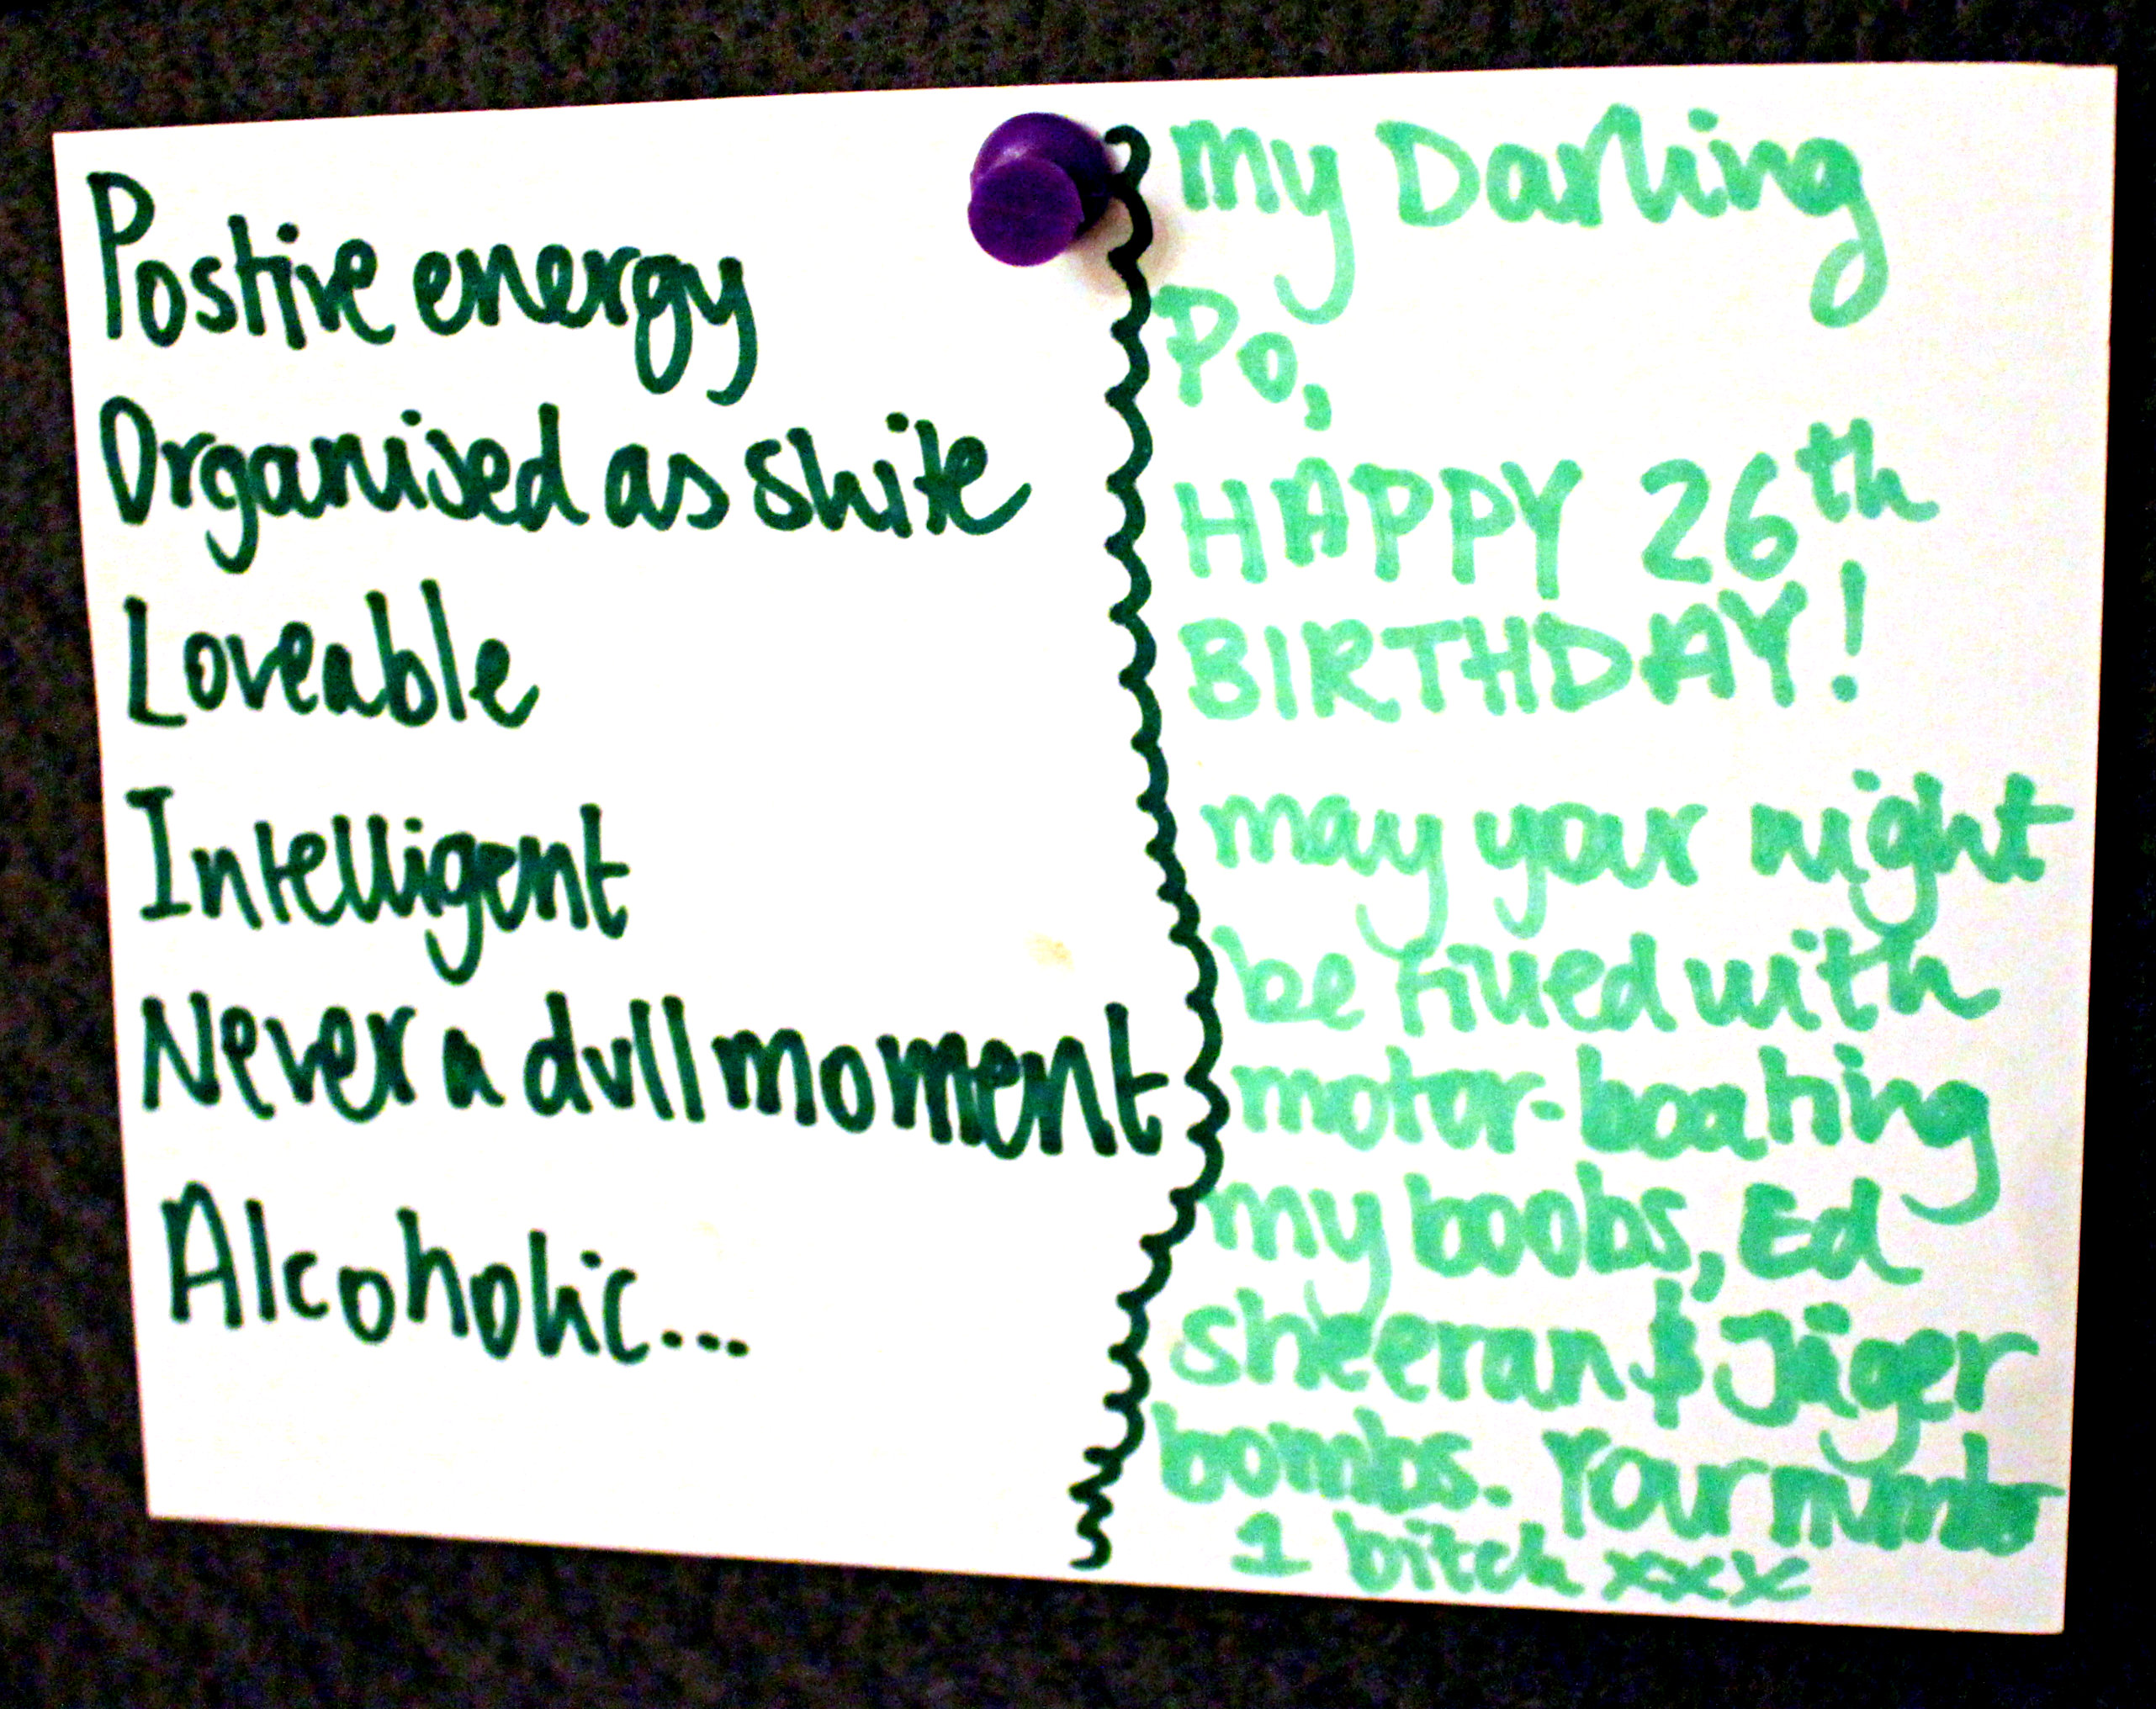 Postive energy
Organised as shite
Loveable
Intelligent
Never a dull moment
Alcoholic...
my Darling
Po,
HAPPY 26th
BIRTHDAY!
may your night
be filled with
motor-boating
my boobs, Ed
sheeran & Jäger
bombs. Your number
1 bitch xxx